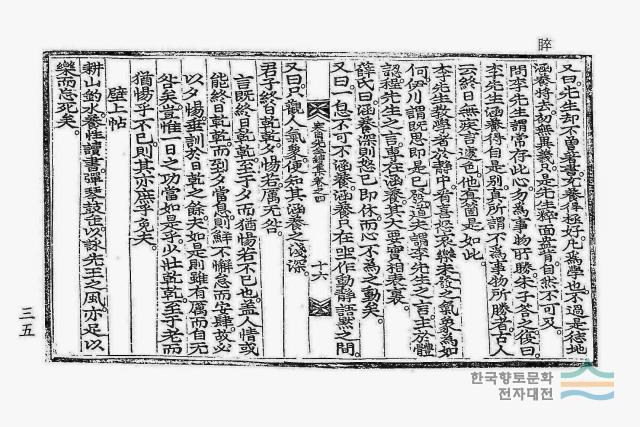 睟
又曰先生却不曾著書充養得極好凡爲學也不過是恁地
涵養將去初無異義只是先生粹面盎背自然不可及
問李先生謂常存此心勿爲事物所勝朱子答之復曰
李先生涵養得自是別真所謂不爲事物所勝者古人
云終日無疾言遽色他真箇是如此
李先生教學者於靜中看喜怒哀樂未發之氣象爲如
何伊川謂既思即是已發道夫謂李先生之言主於體
認程先生之言專在涵養其大要實相表裏
薛氏曰涵養深則怒已即休而心不爲之動矣
又曰一息不可不涵養涵養只在坐作動靜語默之間
卷四 十六
又曰只觀人氣象便知其涵養之淺深
君子終日乾乾夕惕若厲无咎
言既終日乾乾至于夕而猶惕若不已也蓋人情或
能終日乾乾而到夕當怠則鮮不懈怠而安肆故必
以夕惕垂訓於日乾之餘夫如是則雖有厲而自无
咎矣豈惟一日之功當如是乎少壯乾乾至于老而
猶惕乎不已則其亦庶乎免矣
壁上帖
耕山釣水養性讀書彈琴鼓缶以詠先王之風亦足以
樂而忘死矣
三五
한국향토문화
전자대전